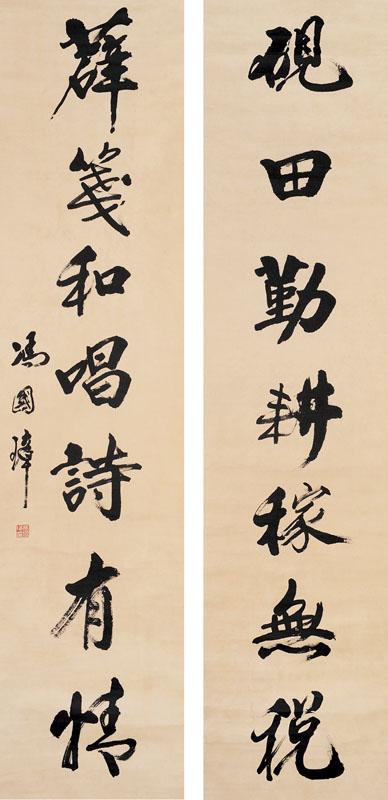 硯田勤耕稼無稅
薛箋和唱詩有情
馮國璋